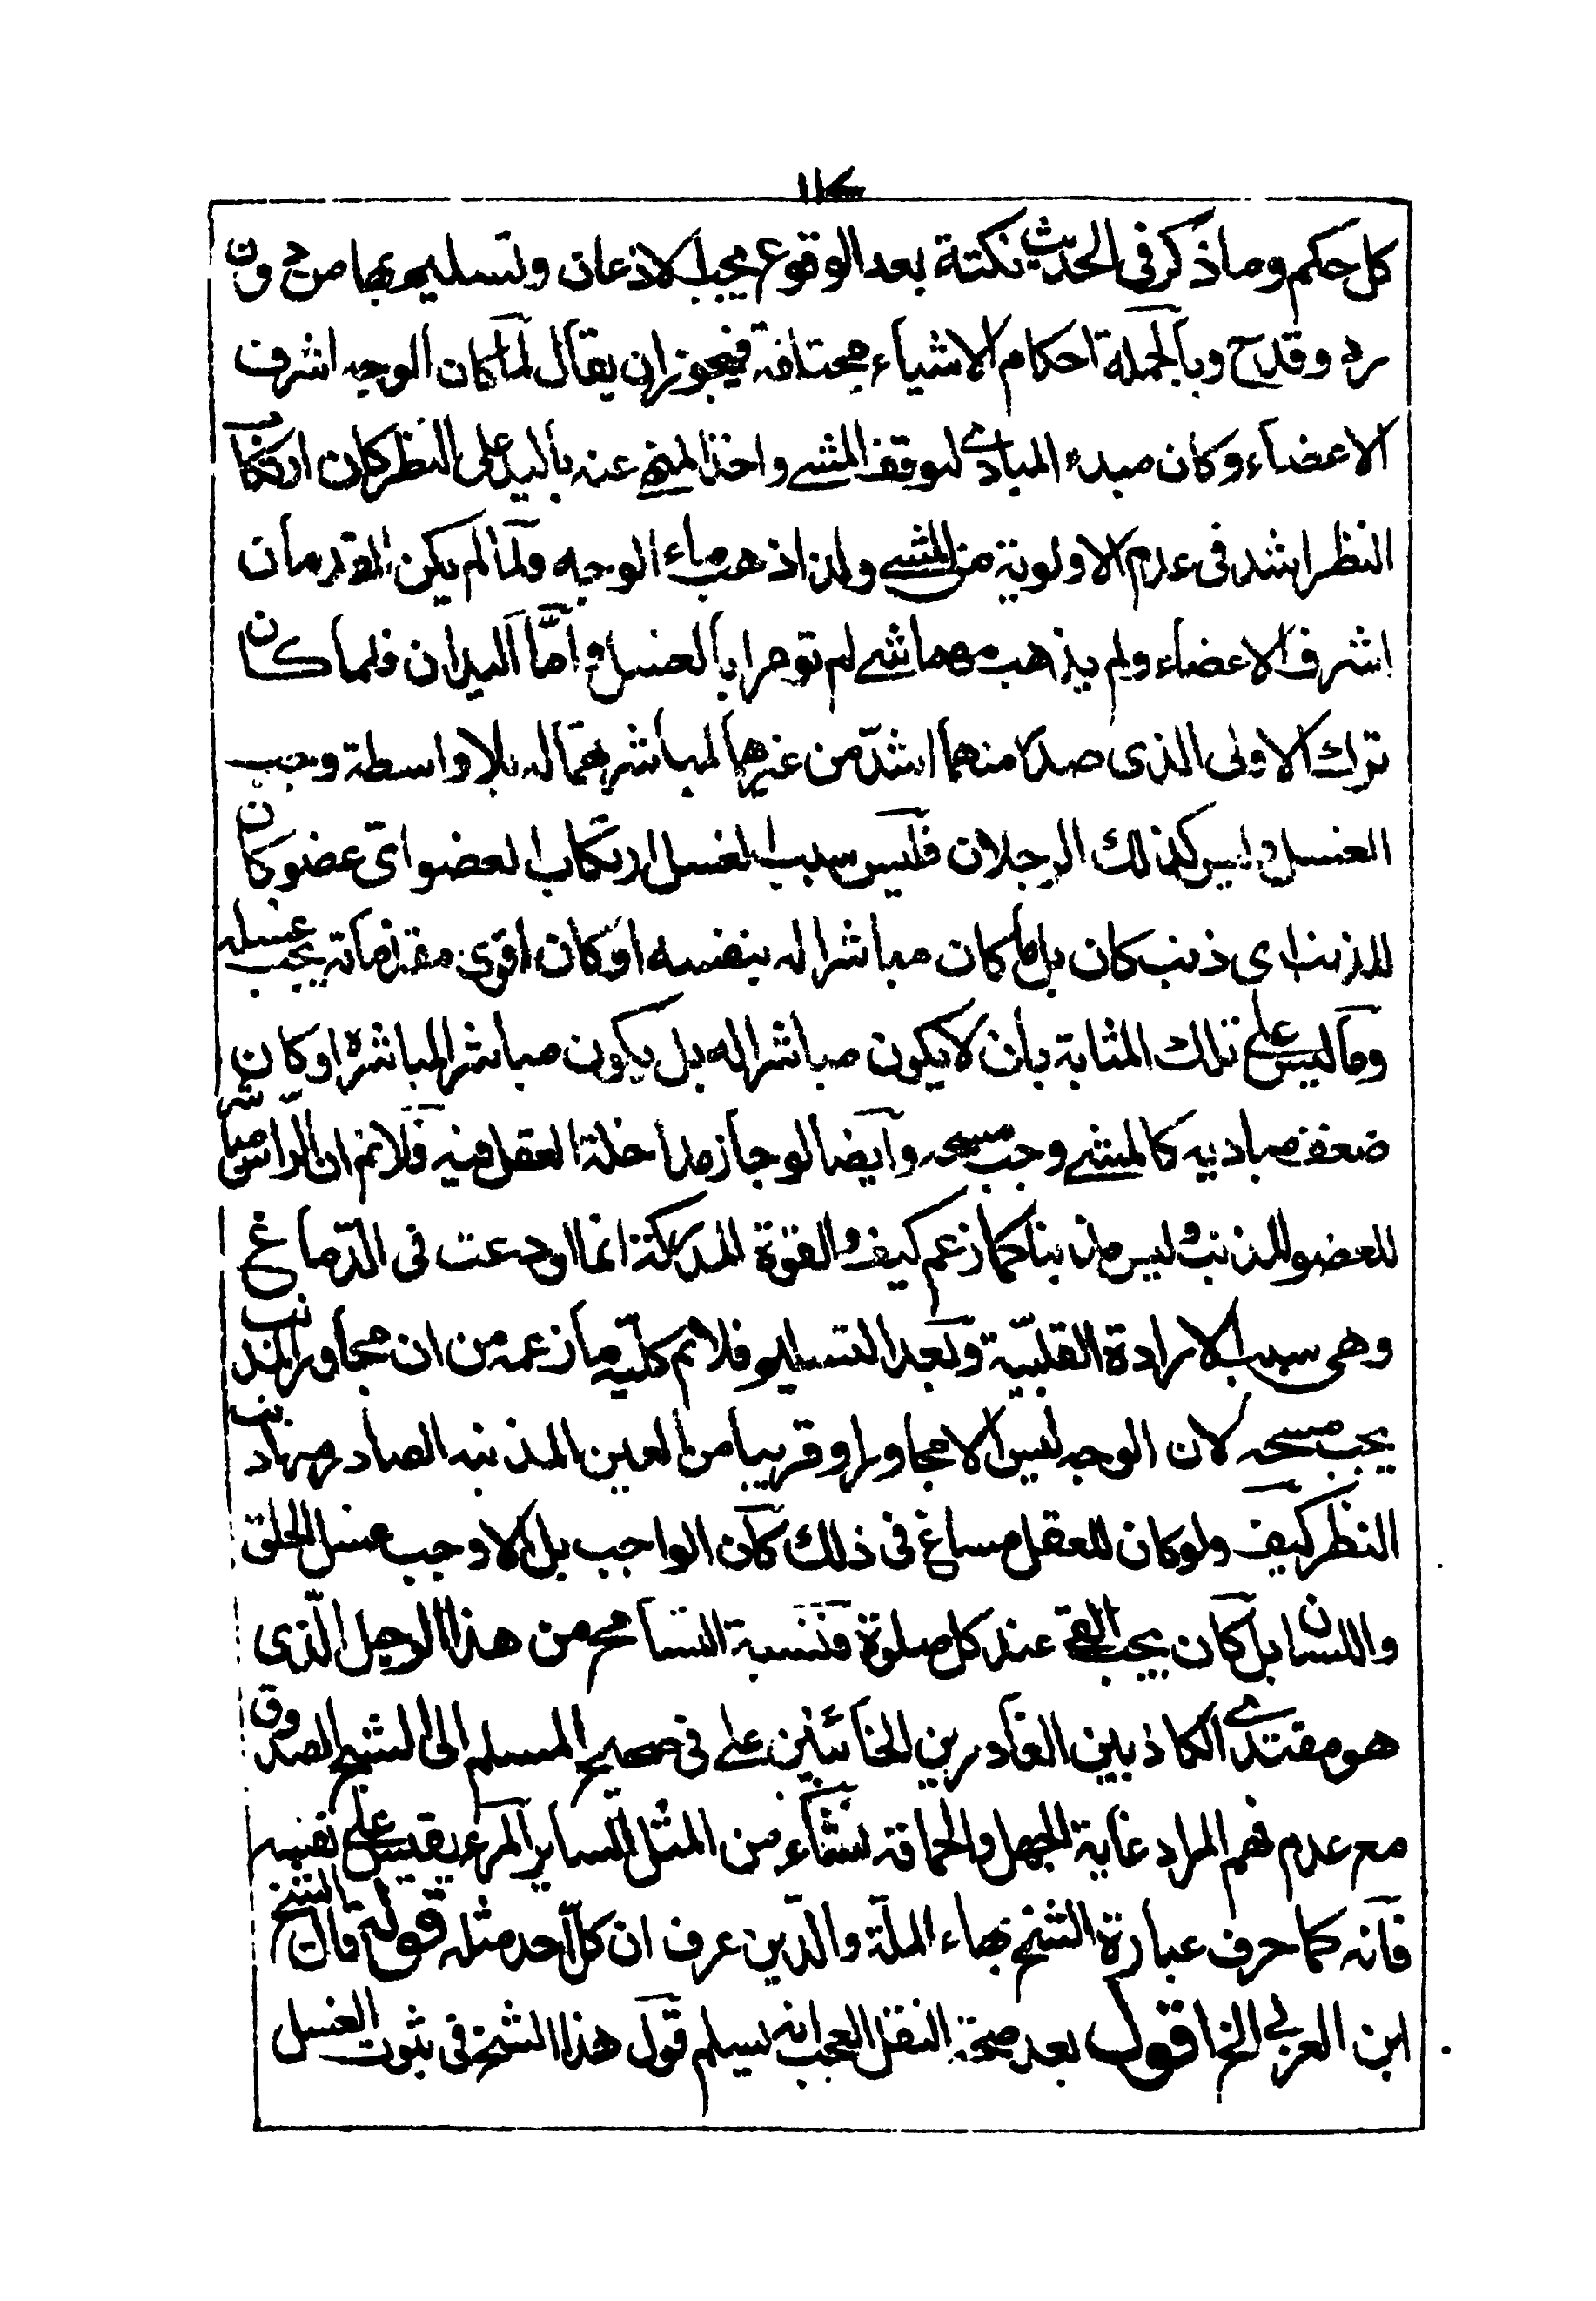 ١١٧
كل حكم وما ذكر فى الحديث نكتة بعد الوقوع يجب الاذعان وتسليمها من دون
رد وقدح وبالجملة احكام الاشياء مختلفة فيجوز ان يقال لما كان الوجه اشرف
الاعضاء وكان مبدء المبادى لتوقف المشى واخذ المنهى عنه باليد على النظر كان ارتكاب
النظر اشد فى عدم الاولوية من المشى ولذا ذهب ماء الوجه ولما لم يكن القدمان
اشرف الاعضاء ولم يذهب منهما شى لم تومرا بالغسل واما اليدان فلما كان
ترك الاولى الذى صدر منهما اشد من غيرها لمباشرتهما له بلا واسطة وجب
الغسل وليس كذلك الرجلان فليس سبب الغسل ارتكاب العضو اى عضو كان
للذنب اى ذنب كان بل ما كان مباشرا له بنفسه او كان اقوى مقدماته يجب غسله
وما ليس على تلك المثابة بان لا يكون مباشرا له بل يكون مباشر المباشره او كان
ضعف مباديه كالمشى وجب مسحه وايضا لو جاز مداخلة العقل فيه فلانم ان الراس مباشر
للعضو المذنب وليس مذنبا كما زعم كيف والقوة المدركة انما اودعت فى الدماغ
وهى سبب الارادة القلبية وبعد التسليم فلانم كلية ما زعمه من ان مجاور المذنب
يجب مسحه لان الوجه ليس الا مجاورا وقريبا من العين المذنبه الصادر منها ذنب
النظر كيف ولو كان للعقل مساغ فى ذلك كان الواجب بل الاوجب غسل الحلق
واللسان بل كان يجب القى عند كل صلوة فنسبة التسامح من هذا الرجل الذى
هو مقتدى الكاذبين الغادرين الخائنين على فى صحيح المسلم الى الشيخ الصدوق
مع عدم فهم المراد غاية الجهل والحماقة نشاء من المثل الساير المرء يقيس على نفسه
فانه كما حرف عبارة الشيخ بهاء الملة والدين عرف ان كل احد مثله قوله قال الشيخ
ابن العربى الخ اقول بعد صحة النقل العجب انه يسلم قول هذا الشيخ فى ثبوت الغسل